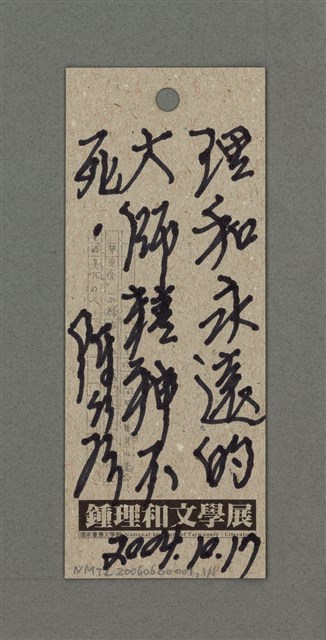 理和永遠的
大師精神不
死。
鍾理和文學展
國家臺灣文學館 National Museum of Taiwanese Literature
2004.10.17